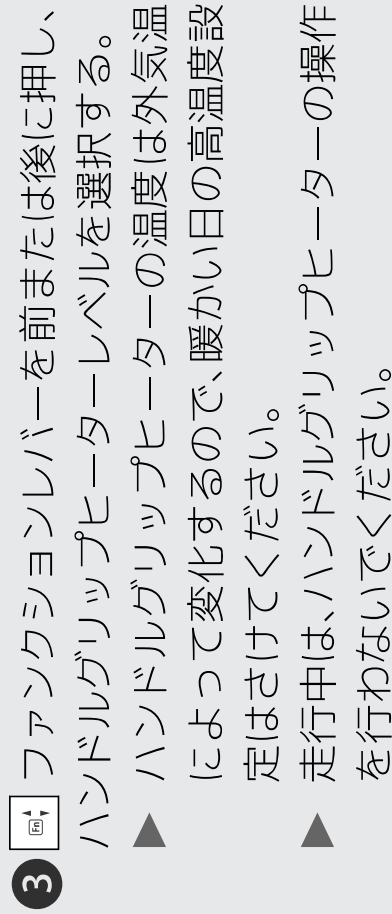 3 Fn ファンクションレバーを前または後に押し、
ハンドルグリップヒーターレベルを選択する。
▲ ハンドルグリップヒーターの温度は外気温
によって変化するので、暖かい日の高温度設
定はさけてください。
▲ 走行中は、ハンドルグリップヒーターの操作
を行わないでください。